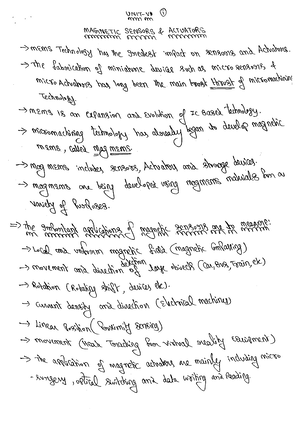 UNIT-VI ①
MAGNETIC SENSORS & ACTUATORS
→ MEMS Technology has the greatest impact on sensors and Actuators.
→ The fabrication of miniature devices such as micro sensors &
micro Actuators has long been the main thrust of micromachining
Technology.
→ MEMS is an expansion and evolution of IC Based technology.
→ micromachining technology has already began to develop magnetic
MEMS, called magMEMS
→ mag MEMS includes sensors, Actuators and storage devices.
→ magMEMS are being developed using magMEMS materials for a
variety of Purposes.
⇒ The important applications of magnetic sensors are to measure:
→ Local and uniform magnetic field (magnetic Compassing)
→ movement and direction detection of large objects (Car, Bus, Train, etc)
→ Rotation (Rotating shaft, devices etc).
→ current density and direction (Electrical machines)
→ Linear Position (Proximity Sensing)
→ movement (Head Tracking for virtual reality Equipment)
→ The application of magnetic actuators are mainly including micro
-surgery, optical switching and data writing and Reading.